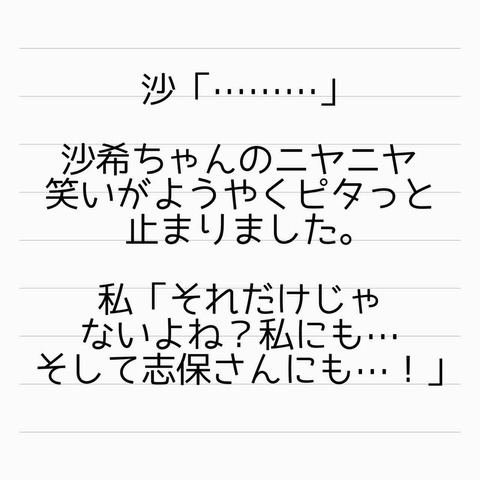 沙「………」
沙希ちゃんのニヤニヤ
笑いがようやくピタっと
止まりました。
私「それだけじゃ
ないよね？私にも…
そして志保さんにも…！」